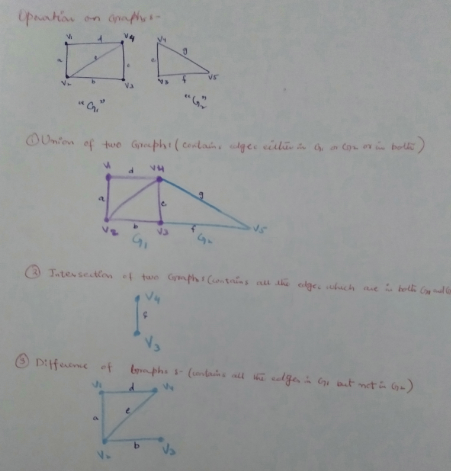 Operation on Graphs:-
V1 d V4 V4
a e c c g
V2 b V3 V3 f V5
"G1" "G2"
① Union of two Graphs (contains edges either in G1 or G2 or in both)
V1 d V4
a c g
V2 b V3 f V5
G1 G2
② Intersection of two Graphs (contains all the edges which are in both G1 and
V4
c
V3
③ Difference of Graphs :- (contains all the edges in G1 but not in G2)
V1 d V4
a e
V2 b V3